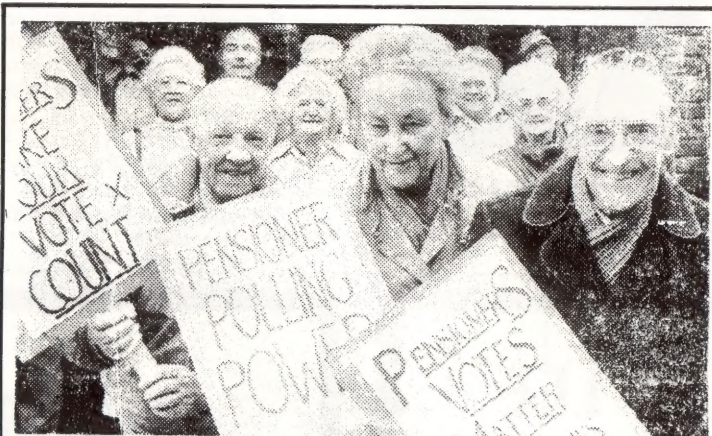 ERS
KE
OUR
VOTE X
COUNT
PENSIONER
POLLING
POWER
PENSIONERS
VOTES
MATTER